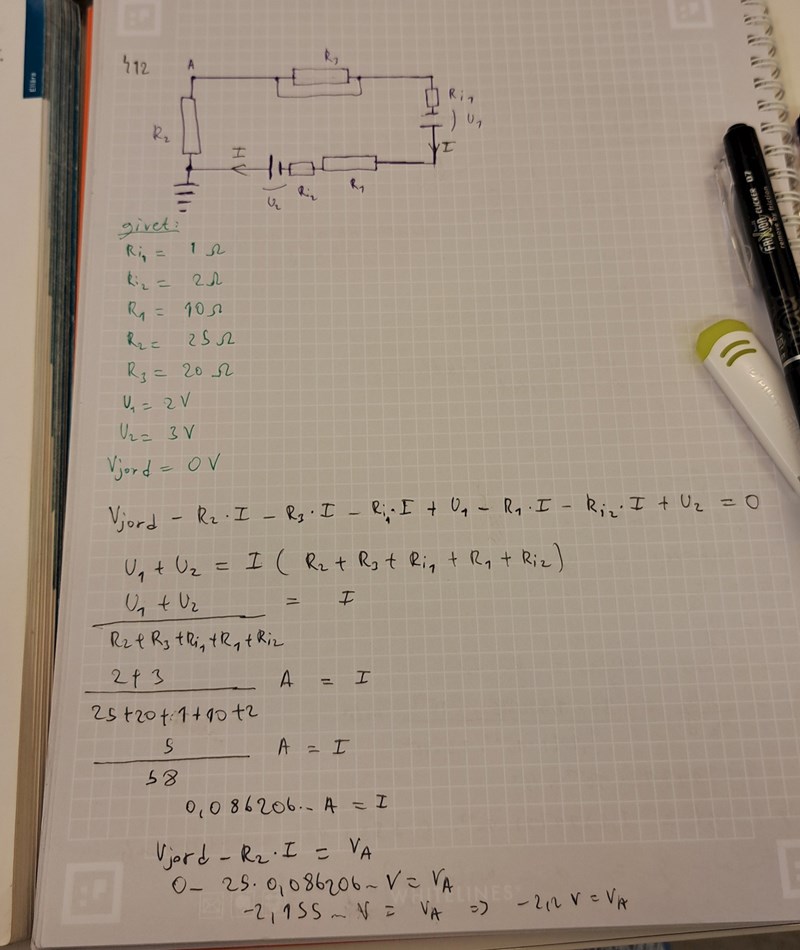 412
A
R₃
Ri₁
U₁
R₂
I
I
U₂
Ri₂
R₁
givet:
Ri₁ = 1 Ω
Ri₂ = 2 Ω
R₁ = 10 Ω
R₂ = 25 Ω
R₃ = 20 Ω
U₁ = 2 V
U₂ = 3 V
Vjord = 0 V
Vjord - R₂·I - R₃·I - Ri₁·I + U₁ - R₁·I - Ri₂·I + U₂ = 0
U₁ + U₂ = I ( R₂ + R₃ + Ri₁ + R₁ + Ri₂)
U₁ + U₂ = I
R₂ + R₃ + Ri₁ + R₁ + Ri₂
2+3 A = I
25+20+1+10+2
5 A = I
58
0,086206.. A = I
Vjord - R₂·I = VA
0 - 25·0,086206~ V = VA
-2,155~ V = VA => -2,2 V = VA
WHITELINES
Ellära
FRIXION CLICKER 0.7